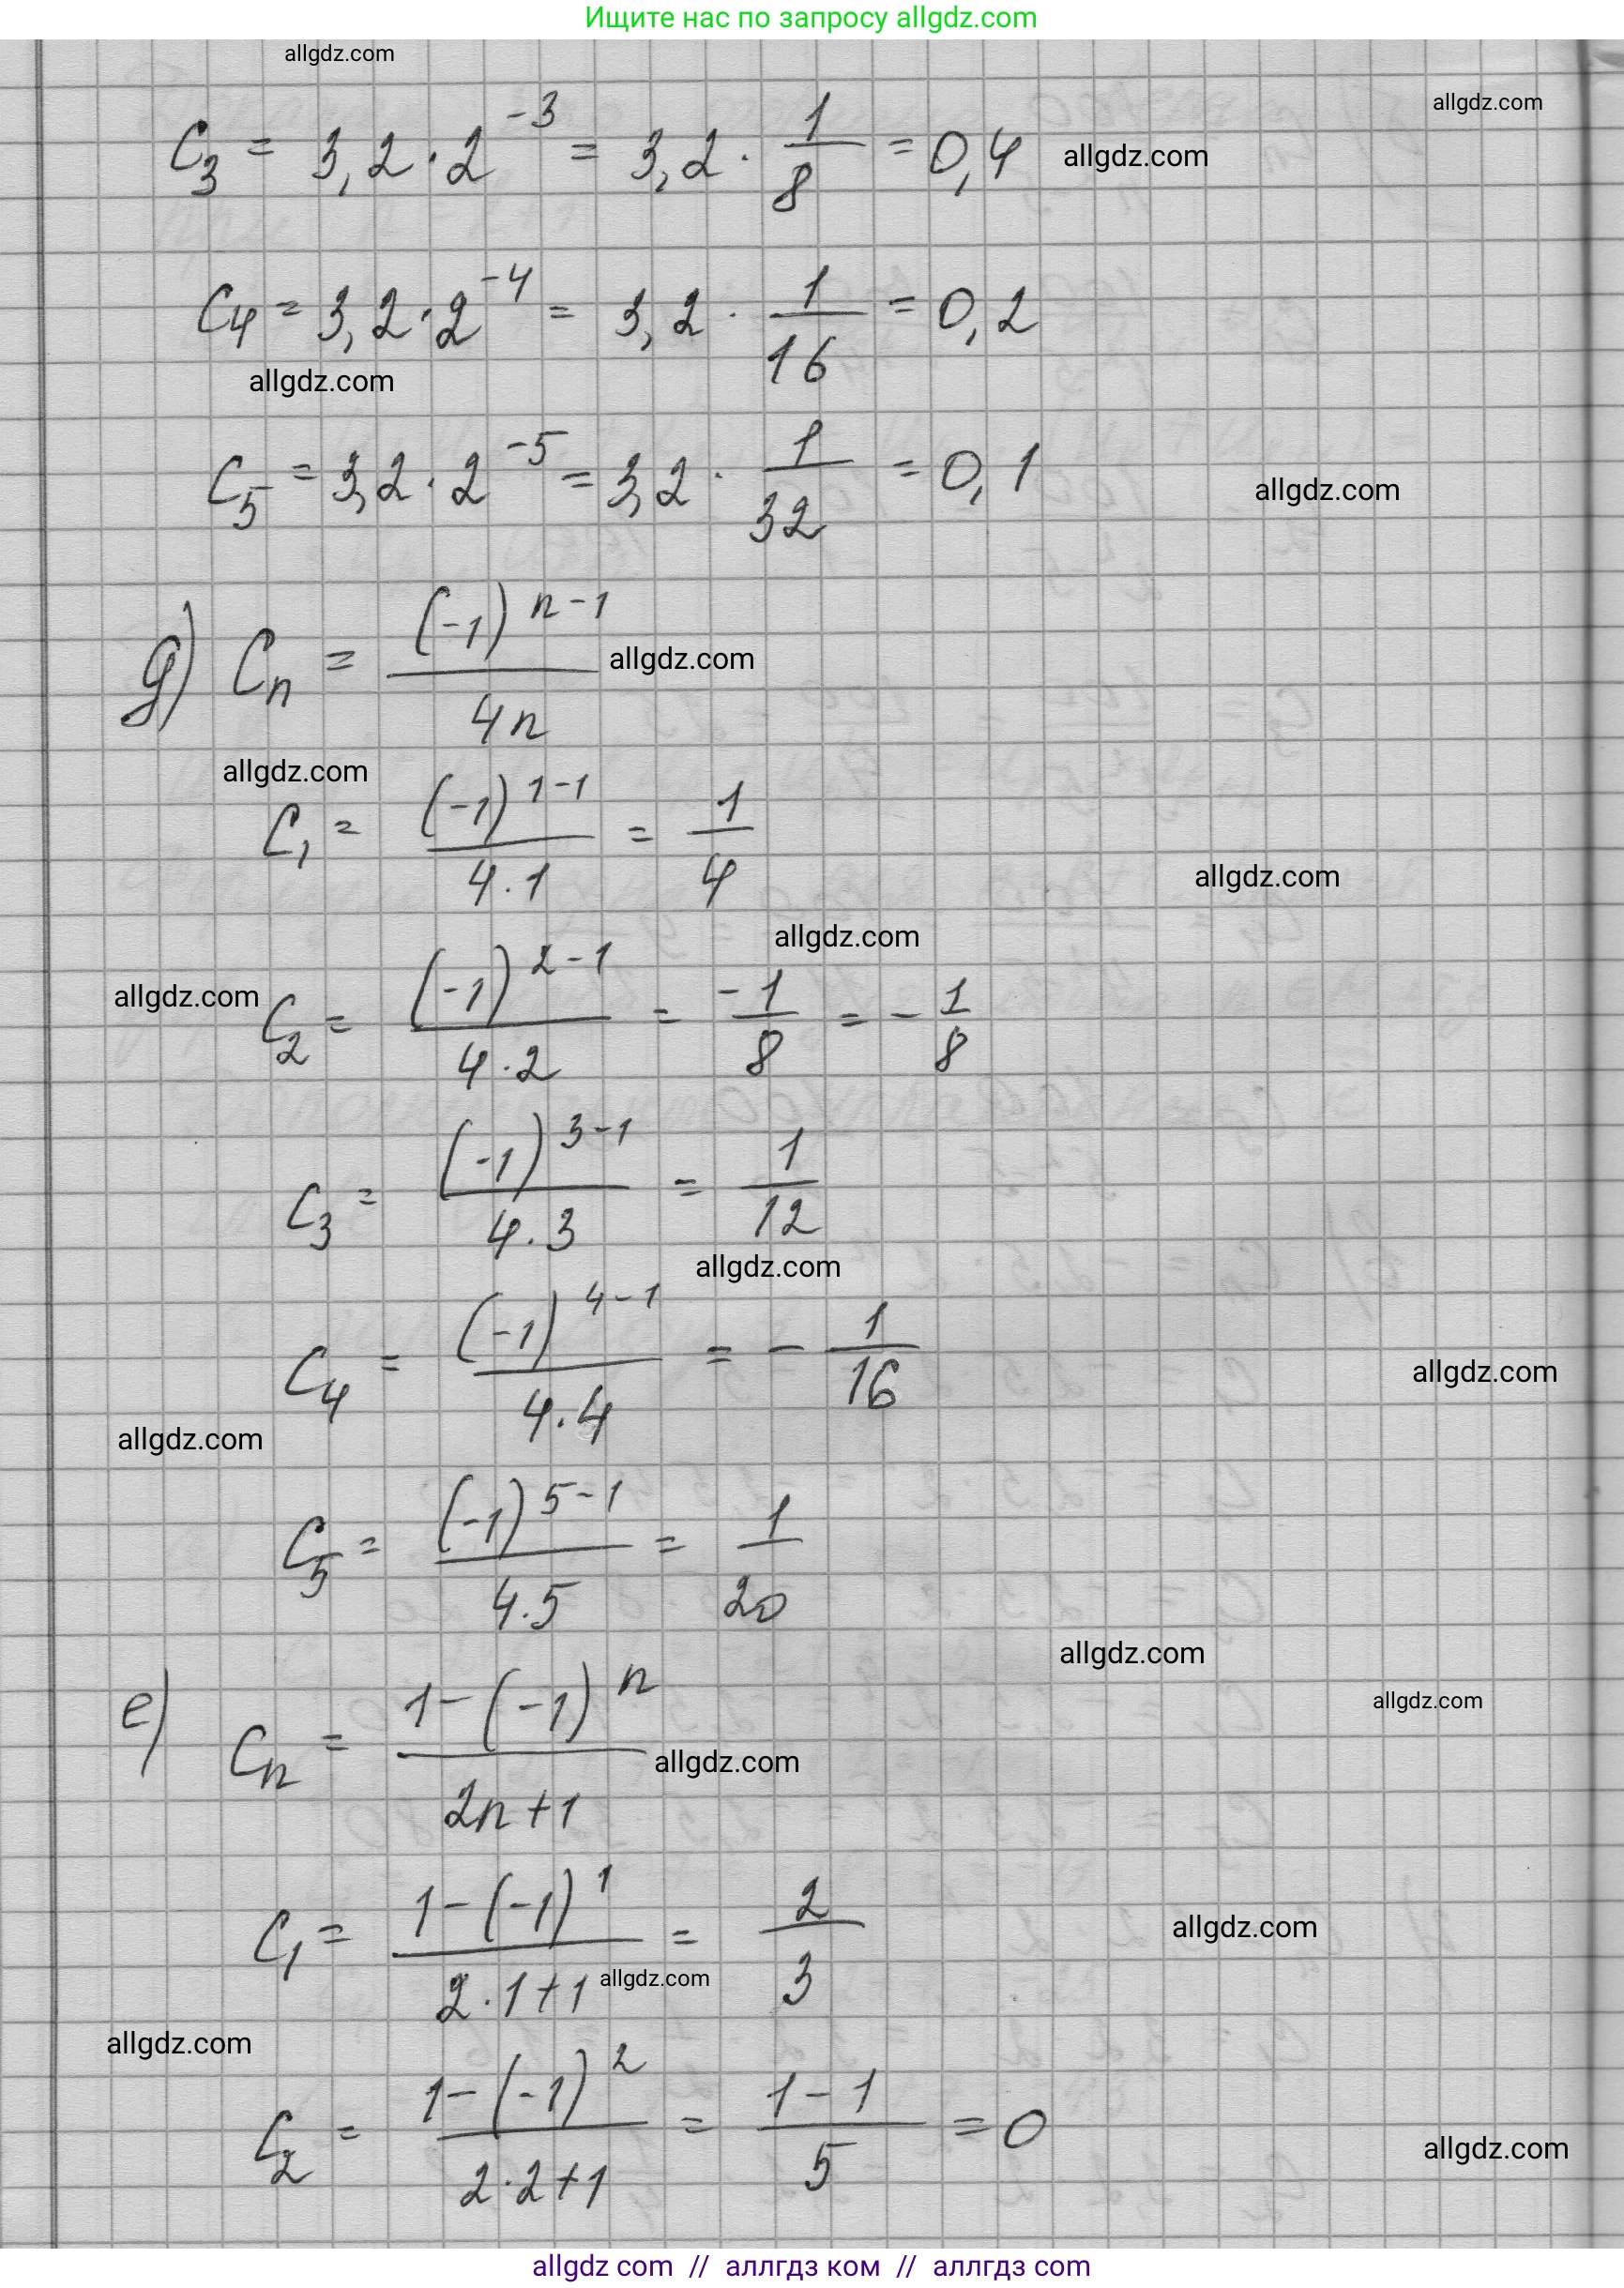 Ищите нас по запросу allgdz.com
allgdz.com
allgdz.com
C₃ = 3,2 · 2⁻³ = 3,2 · 1/8 = 0,4 allgdz.com
C₄ = 3,2 · 2⁻⁴ = 3,2 · 1/16 = 0,2
allgdz.com
C₅ = 3,2 · 2⁻⁵ = 3,2 · 1/32 = 0,1
allgdz.com
д) Cₙ = (-1)ⁿ⁻¹/4n allgdz.com
allgdz.com
C₁ = (-1)¹⁻¹/4·1 = 1/4
allgdz.com
allgdz.com
allgdz.com
C₂ = (-1)²⁻¹/4·2 = -1/8 = - 1/8
C₃ = (-1)³⁻¹/4·3 = 1/12
allgdz.com
C₄ = (-1)⁴⁻¹/4·4 = - 1/16
allgdz.com
allgdz.com
C₅ = (-1)⁵⁻¹/4·5 = 1/20
allgdz.com
allgdz.com
е) Cₙ = 1-(-1)ⁿ/2n+1 allgdz.com
C₁ = 1-(-1)¹/2·1+1 = 2/3
allgdz.com
allgdz.com
allgdz.com
C₂ = 1-(-1)²/2·2+1 = 1-1/5 = 0
allgdz.com
allgdz com // аллгдз ком // аллгдз com